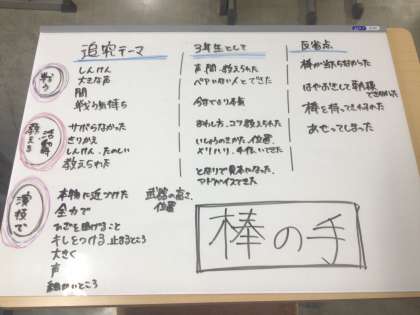 追究テーマ
戦う
しんけん
大きな声
間
戦う気持ち
活動
教える
サボらなかった
きりかえ
しんけん、たのしい
教えられた
演技で
本物に近づけた
全力で
ひざを曲げること
キレをつける 止まるところ
大きく
声
細かいところ
武器の高さ、
位置
3年生として
声、間、教えられた
ペアいない人とできた
今までより本気
まわし方、コツ教えられた
いしょうのきかた、位置
メリハリ、手伝いできた
となりで見本になった
アドバイスできた
反省点
棒が当たらなかった
はやおきして朝練
できなかった
棒を持ってきわすれた
あせってしまった
棒の手